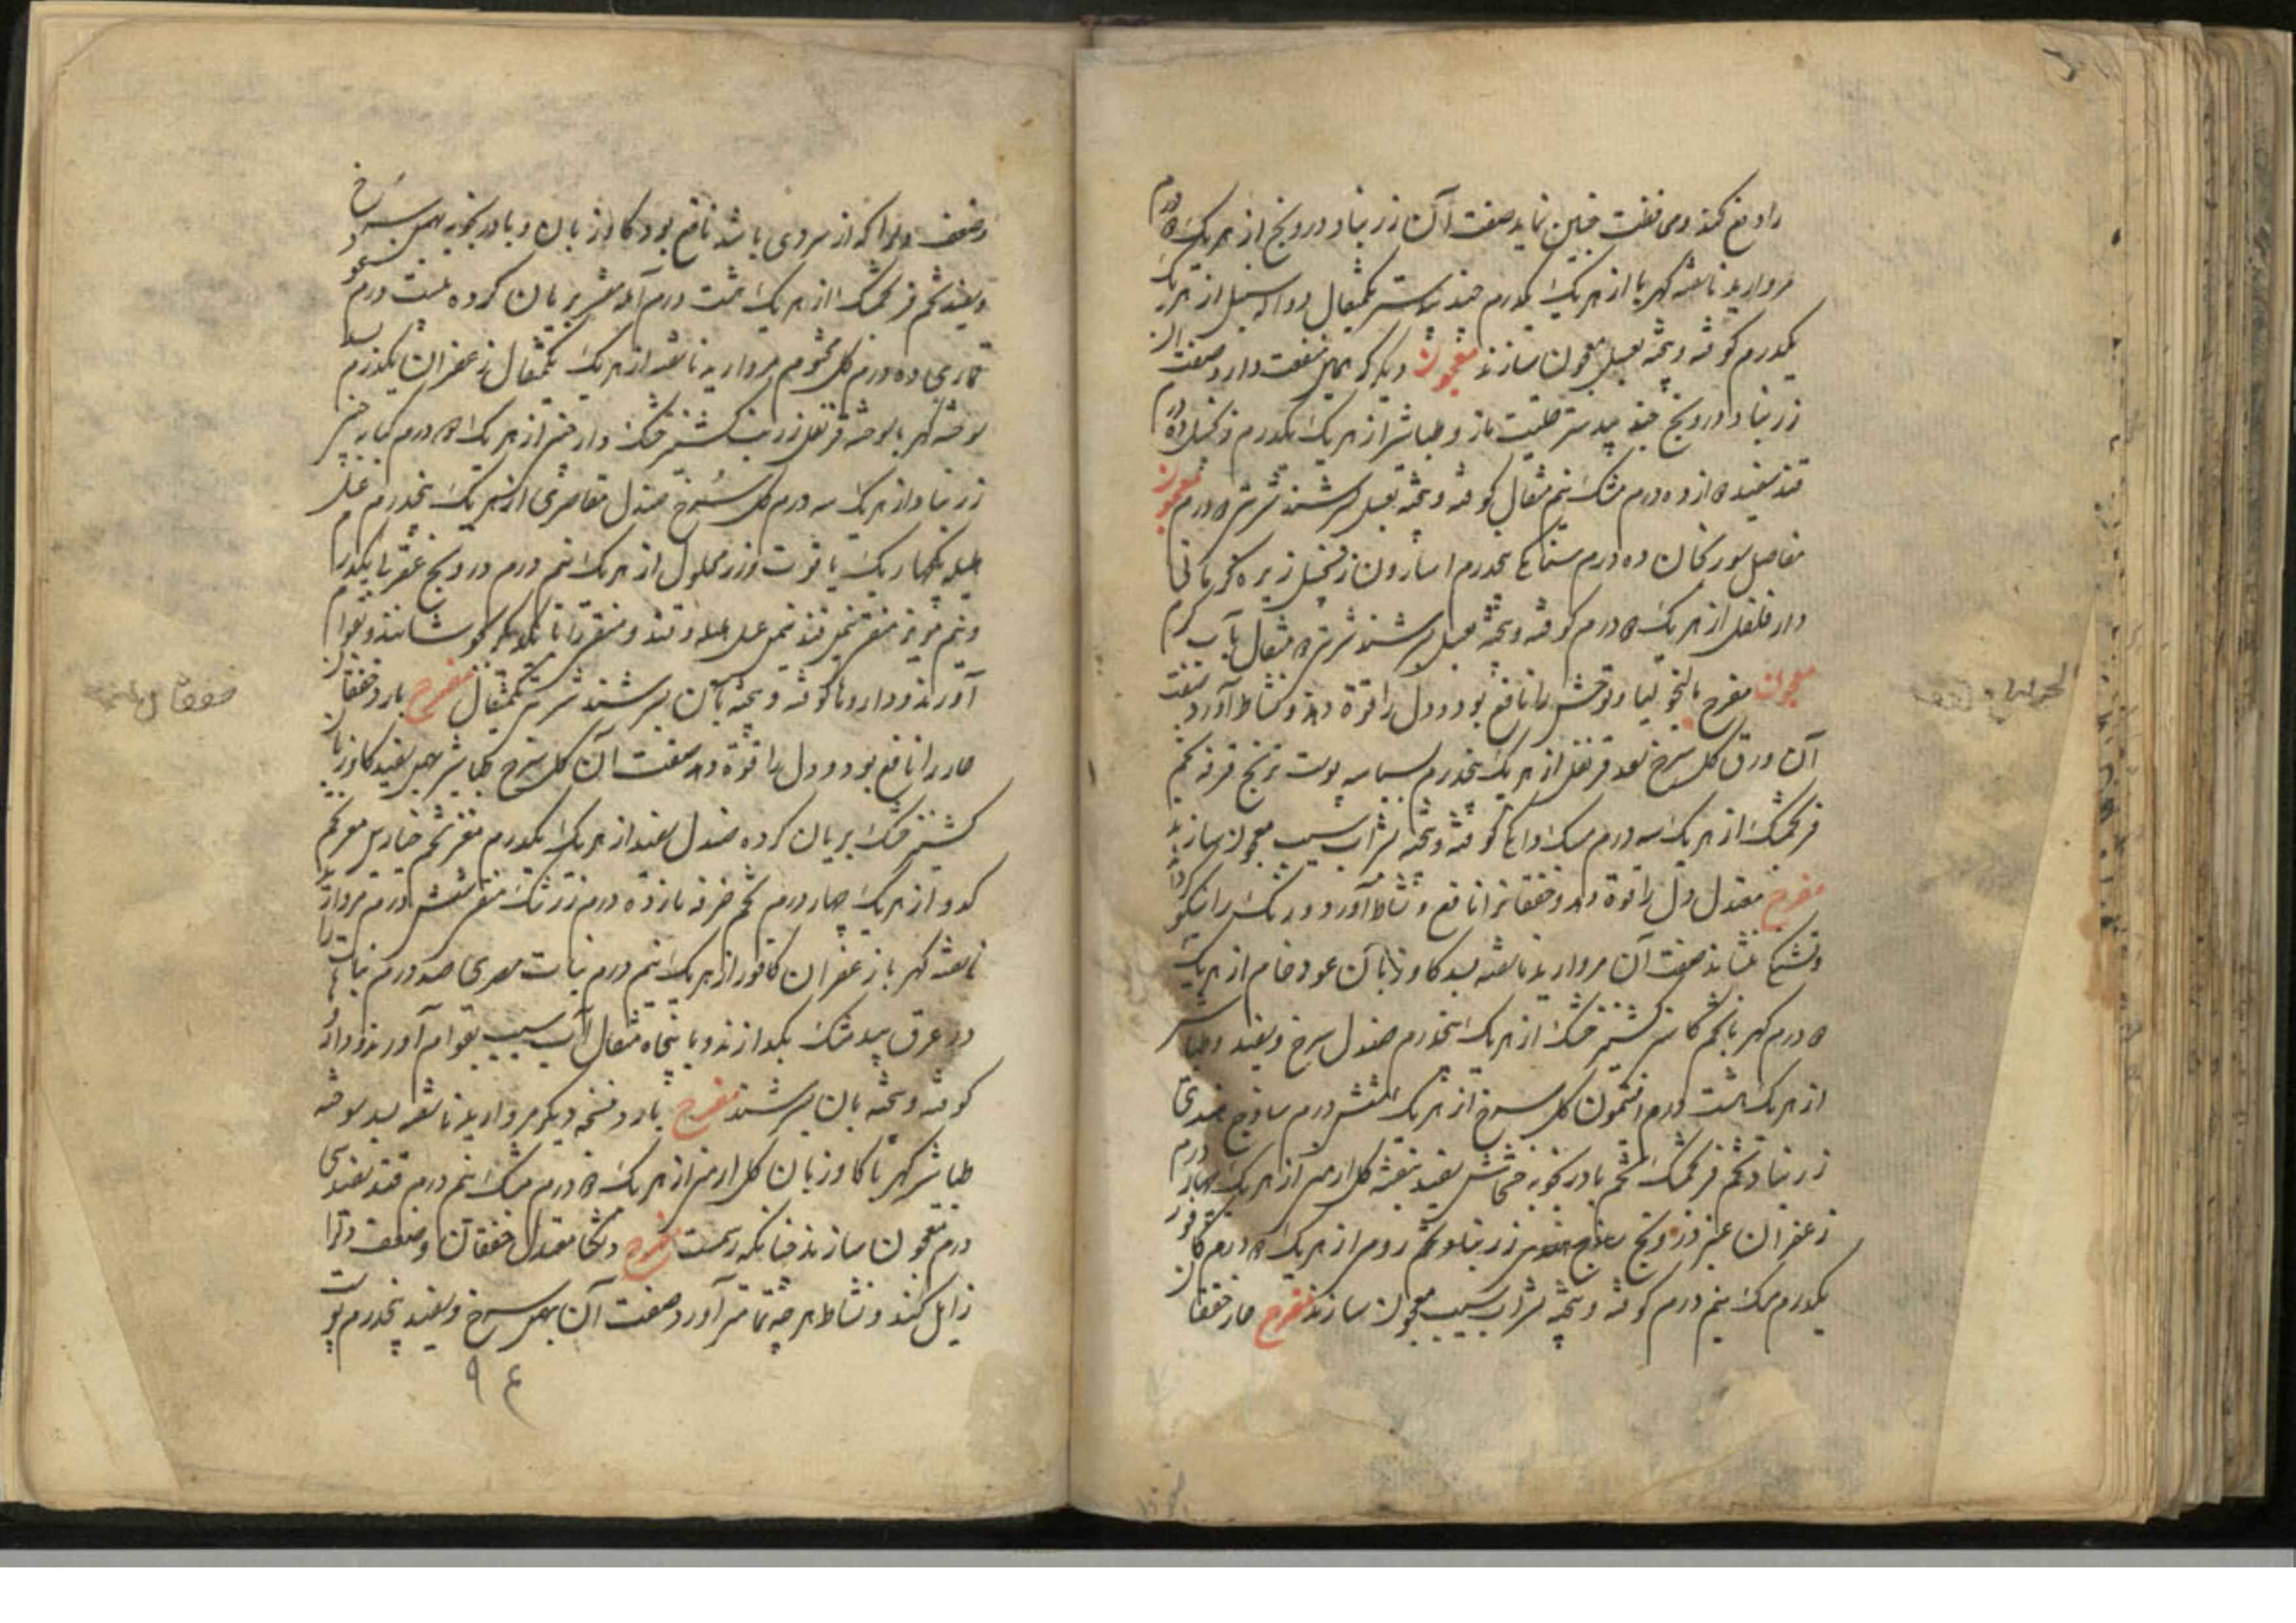 را دفع کند و محافظت جنین نماید صفت آن زرنباد و درونج از هر یک ۵ درم
مروارید ناسفته کهربا از هر یک یکدرم جند بیدستر یکمثقال سنبل از هر یک
یکدرم کوفته و بیخته بعسل معجون سازند معجون دیگر که همین منفعت دارد صفت آن
زرنباد درونج جند بیدستر حلتیت طباشیر از هر یک یکدرم زنجبیل ده درم
قند سفید ده درم مشک نیم مثقال کوفته و بیخته بعسل سرشند شربتی ۵ درم معجون
مفاصل سورنجان ده درم سنامکی پنجدرم اسارون زنجبیل زیره کرمانی
دار فلفل از هر یک ۵ درم کوفته و بیخته بعسل سرشند شربتی ۵ مثقال بآب گرم
معجون مفرح مالیخولیا و توحش را نافع بود و دل را قوة دهد و نشاط آورد صفت
آن ورق گل سرخ سعد قرنفل از هر یک پنجدرم بسباسه پوست ترنج قرفه تخم
فرنجمشک از هر یک سه درم مشک دانگی کوفته و بیخته بشراب سیب معجون سازند
مفرح معتدل دل را قوة دهد و خفقانرا نافع و نشاط آورد و رنگ را نیکو گرداند
و تشنگی بنشاند صفت آن مروارید ناسفته بسد گاوزبان عود خام از هر یک
۵ درم کهربا تخم کاسنی کشنیز خشک از هر یک پنجدرم صندل سرخ و سفید و طباشیر
از هر یک هشت درم افتیمون گل سرخ از هر یک شش درم ساذج هندی
زرنباد تخم فرنجمشک تخم بادرنجبویه خشخاش سفید بنفشه گل ارمنی از هر یک چهار درم
زعفران عنبر درونج ساذج هندی زرنباد تخم رومی از هر یک ۵ درم کافور
یکدرم مشک نیم درم کوفته و بیخته بشراب سیب معجون سازند مفرح حار خفقان
و ضعف دلرا که از سردی باشد نافع بود گاوزبان و بادرنجبویه بهمن سرخ
و سفید تخم فرنجمشک از هر یک هشت درم آمله مقشر بریان کرده بیست درم عود
قماری ده درم گل مختوم مروارید ناسفته از هر یک یکمثقال زعفران یکدرم بسد
سوخته کهربا سوخته قرنفل زرنب کشنیز خشک دارچینی از هر یک ۵ درم کبابه چینی
زرنباد از هر یک سه درم گل سرخ صندل مقاصری از هر یک پنجدرم عسل
هلیله یکچهاریک یاقوت و زر محلول از هر یک نیم درم درونج عقربی یکدرم
و نیم مویز منقی قند عسل هلیله و قند و منقی را با یکدیگر بجوشانند و بقوام
آورند و داروها کوفته و بیخته بآن بسرشند شربتی یکمثقال مفرح بارد خفقان
حار را نافع بود و دل را قوة دهد صفت آن گل سرخ طباشیر بهمن سفید گاوزبان
کشنیز خشک بریان کرده صندل سفید از هر یک یکدرم مغز تخم خیارین مغز تخم
کدو از هر یک چهار درم تخم خرفه یازده درم زرشک منقی شش درم مروارید
ناسفته کهربا زعفران کافور از هر یک نیم درم نبات مصری صد درم نبات را
در عرق بیدمشک بگدازند و با پنجاه مثقال آب سیب بقوام آورند و داروها
کوفته و بیخته بان بسرشند مفرح بارد نسخه دیگر مروارید ناسفته بسد سوخته
طباشیر کهربا گاوزبان گل ارمنی از هر یک ۵ درم مشک نیم درم قند سفید سی
درم معجون سازند چنانکه رسمست مفرح دلگشا معتدل خفقان و ضعف دلرا
زایل کند و نشاط هر چه تمامتر آورد صفت آن بهمن سرخ و سفید پنجدرم پوست
۹۴
خفقان